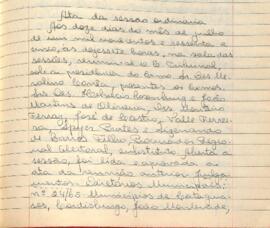 Ata da sessão ordinária
Aos doze dias do mês de julho
de um mil novecentos e sessenta e
cinco, às dezessete horas, na sala das
sessões, reuniu-se o E. Tribunal,
sob a presidência do Exmo. Sr. Des.
Costa, presentes os Exmos.
Srs. Des. Rosenburg e João
Martins de Oliveira, Drs.
Ferraz, José de Castro, Valle Ferrei-
ra, Pontes e
de Barros Filho, Procurador Regio-
nal Eleitoral, substituto. Aberta a
sessão, foi lida e aprovada a
ata da reunião anterior.
Diretórios Municipais:
nº 24/65 Municípios de Catagua-
ses, Cordisburgo, João Monlevade,